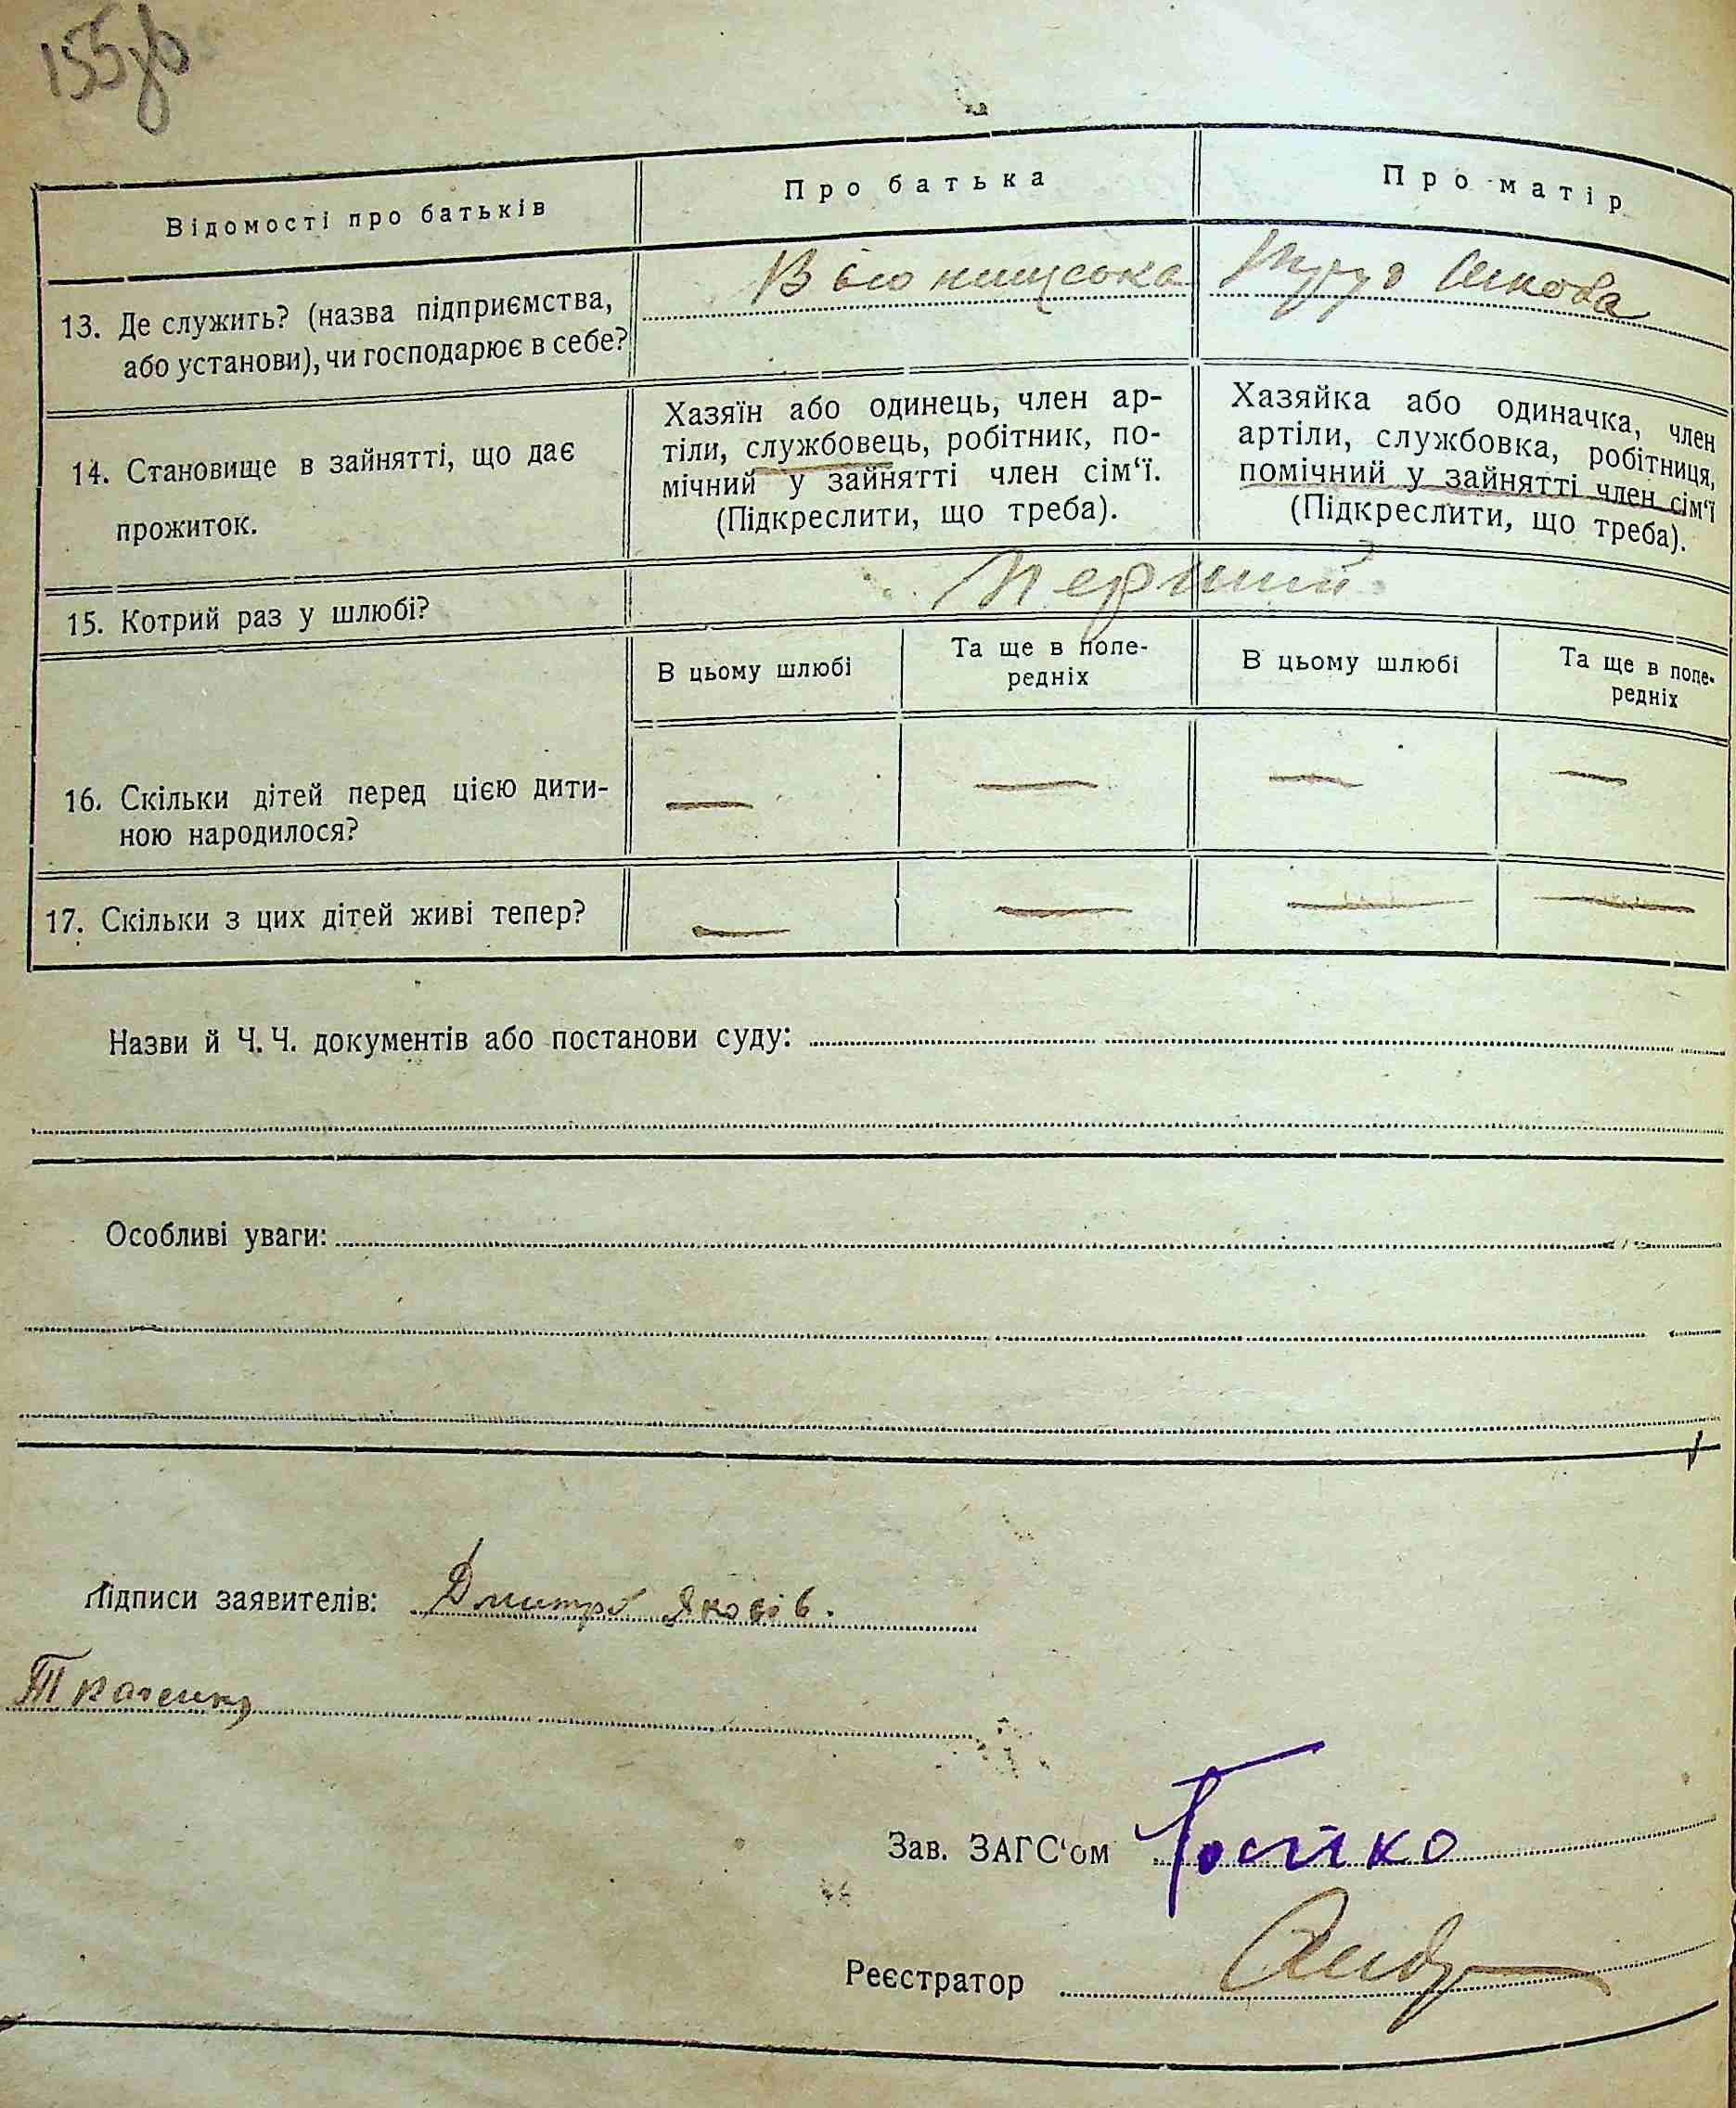 155зв
Відомості про батьків
Про батька
Про матір
13. Де служить? (назва підприємства,
або установи), чи господарює в себе?
14. Становище в зайнятті, що дає
прожиток.
Хазяїн або одинець, член ар-
тіли, службовець, робітник, по-
мічний у зайнятті член сім‘ї.
(Підкреслити, що треба).
Хазяйка або одиначка, член
артіли, службовка, робітниця,
помічний у зайнятті член сім‘ї
(Підкреслити, що треба).
15. Котрий раз у шлюбі?
Перший
В цьому шлюбі
Та ще в попе-
редніх
В цьому шлюбі
Та ще в попе-
редніх
16. Скільки дітей перед цією дити-
ною народилося?
— — — —
17. Скільки з цих дітей живі тепер?
— — — —
Назви й Ч. Ч. документів або постанови суду:
Особливі уваги:
Підписи заявителів: Дмитро Яковів.
Ткаченко
Зав. ЗАГС‘ом Бойко
Реєстратор